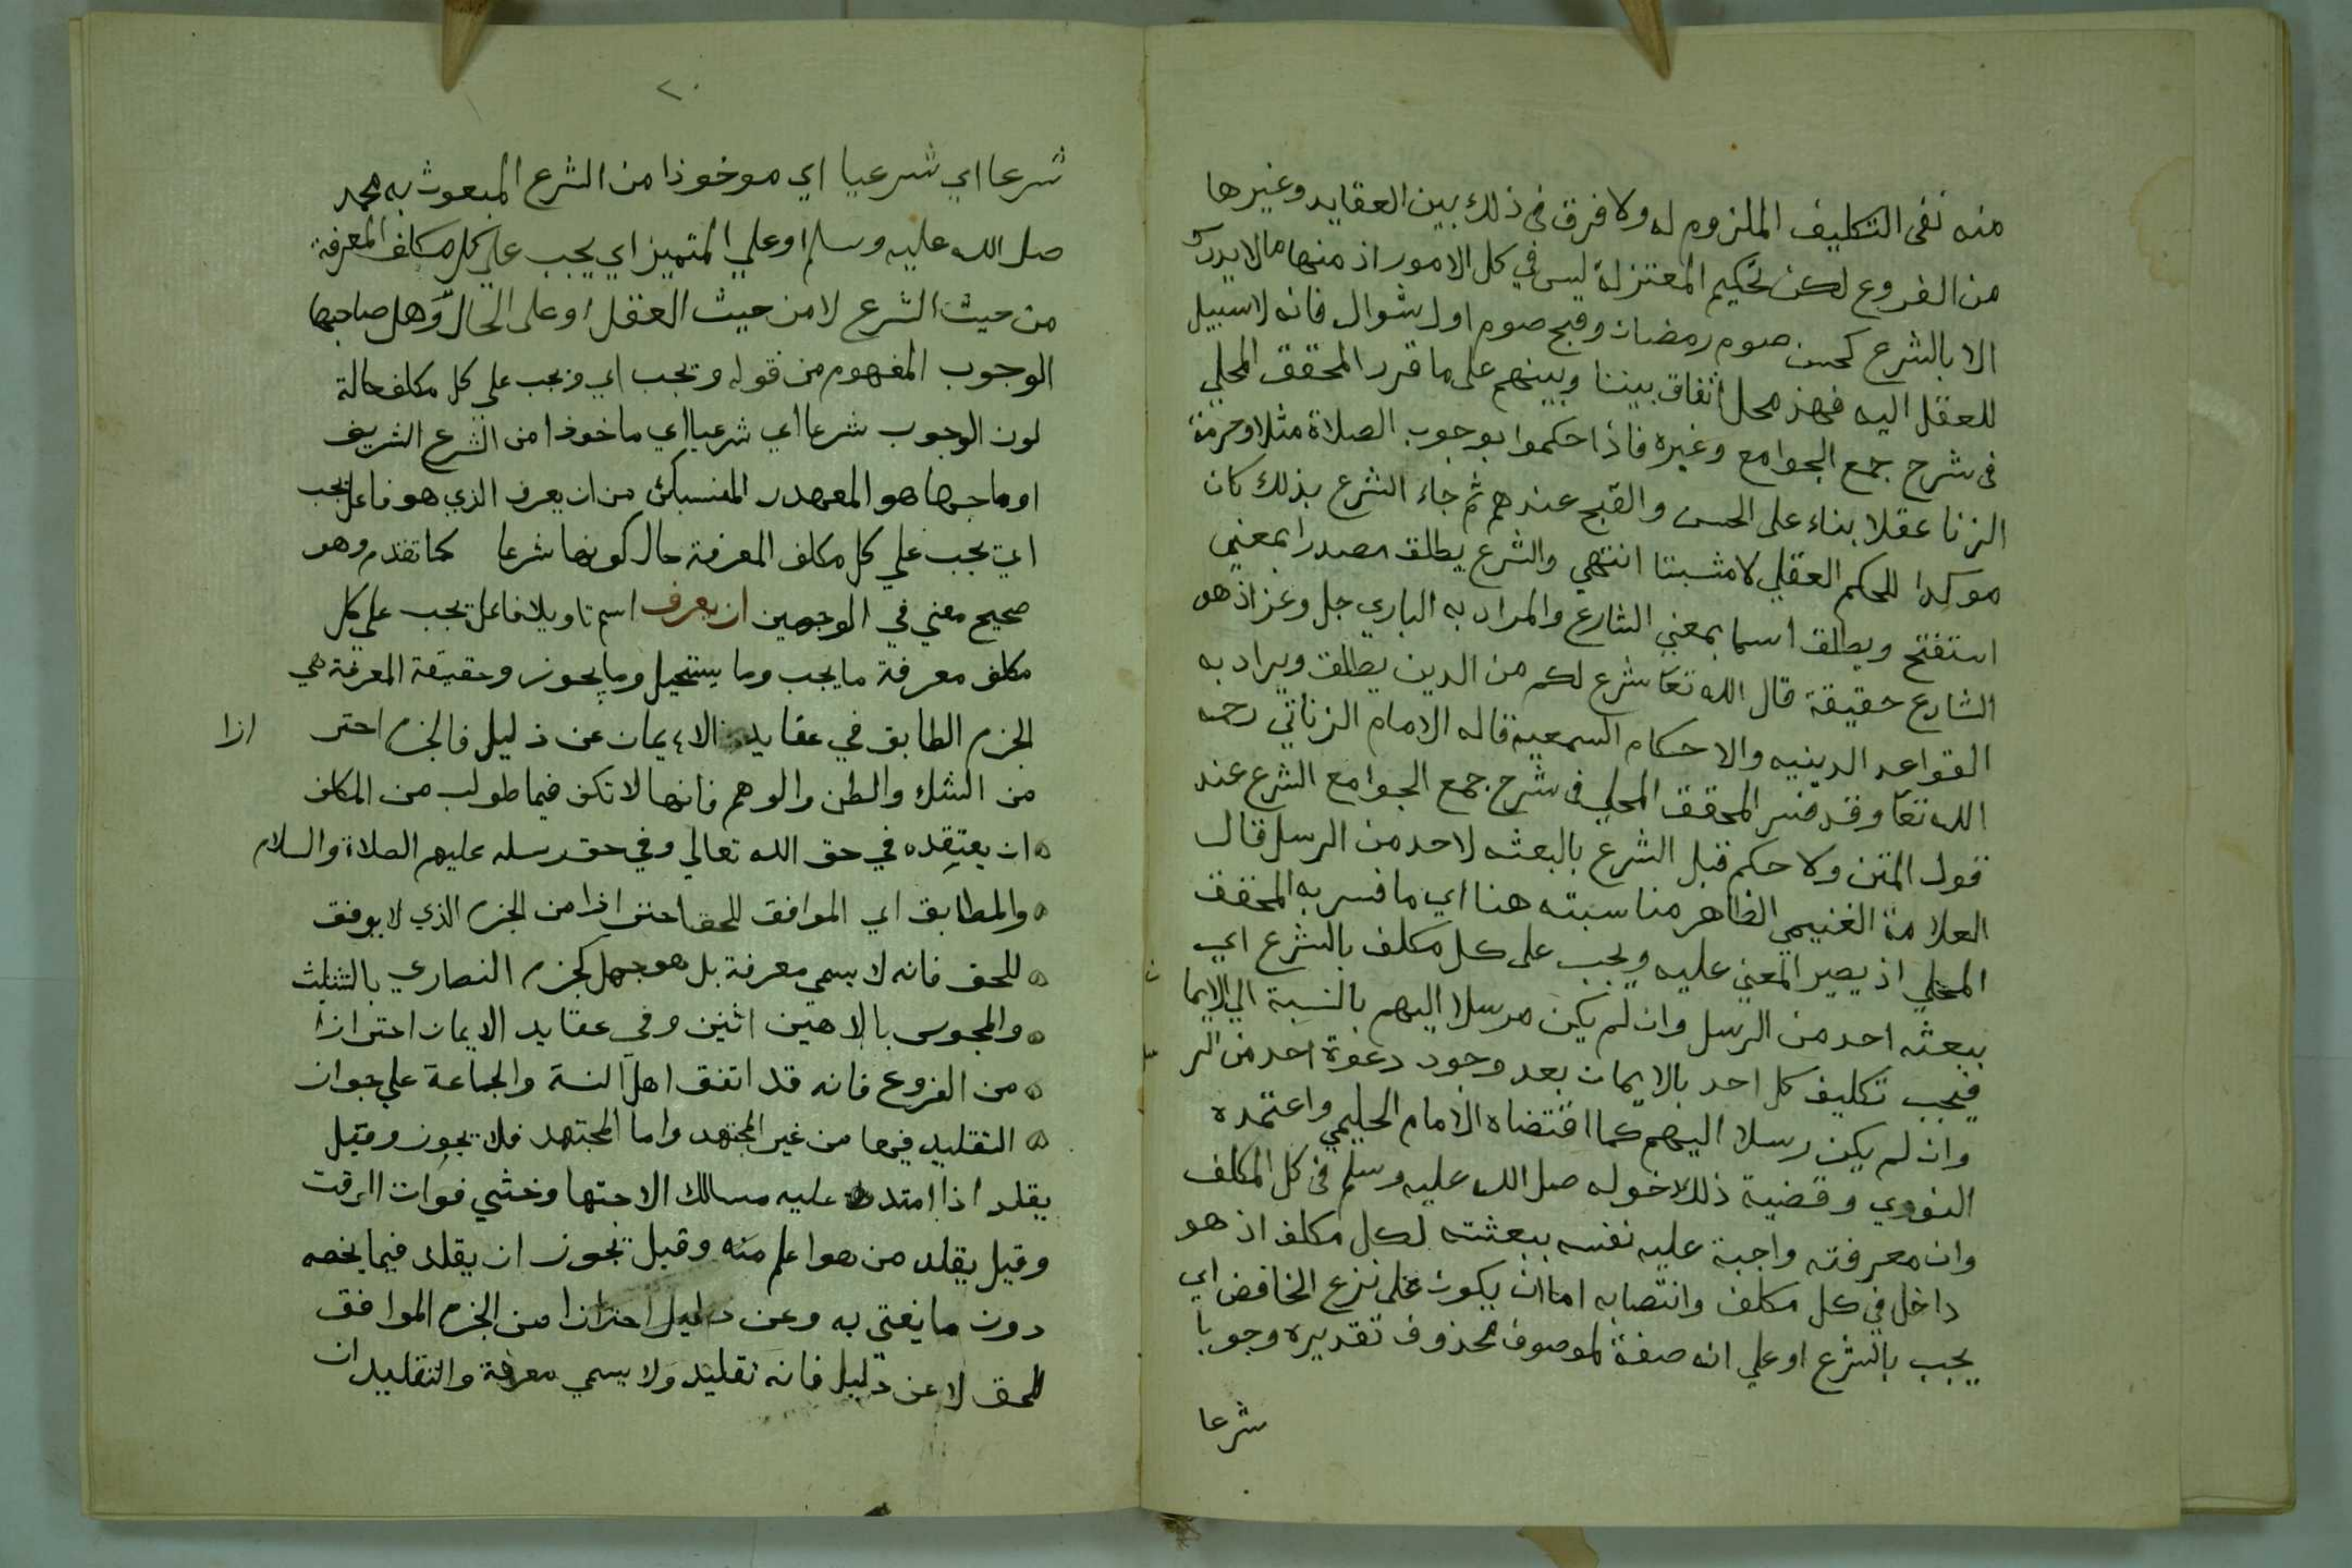 منه نفى التكليف الملزوم له ولا فرق فى ذلك بين العقايد وغيرها
من الفروع لكن تحكيم المعتزلة ليس في كل الامور اذ منها ما لا يدرك
الا بالشرع كحسن صوم رمضان وقبح صوم اول شوال فانه لا سبيل
للعقل اليه فهذ محل اتفاق بيننا وبينهم على ما قرر المحقق المحلي
فى شرح جمع الجوامع وغيره فاذا حكموا بوجوب الصلاة مثلا وحرمة
الزنا عقلا بناء على الحسن والقبح عندهم ثم جاء الشرع بذلك كان
موكدا للحكم العقلي لا مثبتا انتهي والشرع يطلق مصدرا بمعني
استفتح ويطلق اسما بمعني الشارع والمراد به الباري جل وعز اذ هو
الشارع حقيقة قال الله تعا شرع لكم من الدين يطلق ويراد به
القواعد الدينيه والاحكام السمعية قاله الامام الزناتي رحمه
الله تعا وقد فسر المحقق المحلي فى شرح جمع الجوامع الشرع عند
قول المتن ولا حكم قبل الشرع بالبعثه لاحد من الرسل قال
العلامة الغنيمي الظاهر مناسبته هنا اي ما فسر به المحقق
المحلي اذ يصير المعني عليه ويجب على كل مكلف بالشرع اي
ببعثه احد من الرسل وان لم يكن مرسلا اليهم بالنسبة الي الايما ن
فيجب تكليف كل احد بالايمان بعد وجود دعوة احد من الر
وان لم يكن رسلا اليهم كما اقتضاه الامام الحليمي واعتمده
النووي وقضية ذلك دخوله صل الله عليه وسلم فى كل المكلف
وان معرفته واجبة عليه نفسه ببعثته لكل مكلف اذ هو
داخل في كل مكلف وانتصابه اما ان يكون على نزع الخافض اي
يجب بالشرع او علي انه صفة لموصوف محذوف تقديره وجوبا
شرعا
٢٠
شرعا اي شرعيا اي موخوذا من الشرع المبعوث به محمد
صل الله عليه وسلم او علي المتميز اي يجب علي كل مكلف المعرفة
من حيث الشرع لا من حيث العقل او على الحال وهل صاحبها
الوجوب المفهوم من قوله ويجب اي ويجب علي كل مكلف حالة
لون الوجوب شرعا اي شرعيا اي ماخوذا من الشرع الشريف
او صاحبها هو المعهدر المنسبكن من ان يعرف الذي هو فاعل يجب
اي يجب علي كل مكلف المعرفة حال كونها شرعا كما تقدم وهو
صحيح معني في الوجهين ان يعرف اسم تاويلا فاعل يجب علي كل
مكلف معرفة ما يجب وما يستحيل وما يجوز وحقيقة المعرفة هي
الجزم الطابق في عقايد الاءيمان عن ذليل فالجزم احتر ازا
من الشك والظن والوهم فانها لا تكن فيما طولب من المكلف
ان يعتقده في حق الله تعالي وفي حق رسله عليهم الصلاة والسلام
والمطابق اي الموافق للحق احترازا من الجزم الذي لا يوفق
للحق فانه لا يسمى معرفة بل هو جهل كجزم النصاري بالتثليث
والمجوس بالاهين اثنين وفي عقايد الايمان احترازا
من الفروع فانه قد اتفق اهل السنة والجماعة علي جوان
التقليد فيها من غير المجتهد واما المجتهد فلا يجوز وقيل
يقلد اذا امتدت عليه مسالك الاجتها وخشي فوات الرقت
وقيل يقلد من هو اعلم منه وقيل يجوز ان يقلد فيما يخصه
دون ما يفتي به وعن دليل احترازا من الجزم الموافق
للحق لا عن دليل فانه تقليد ولا يسمي معرفة والتقليد ان